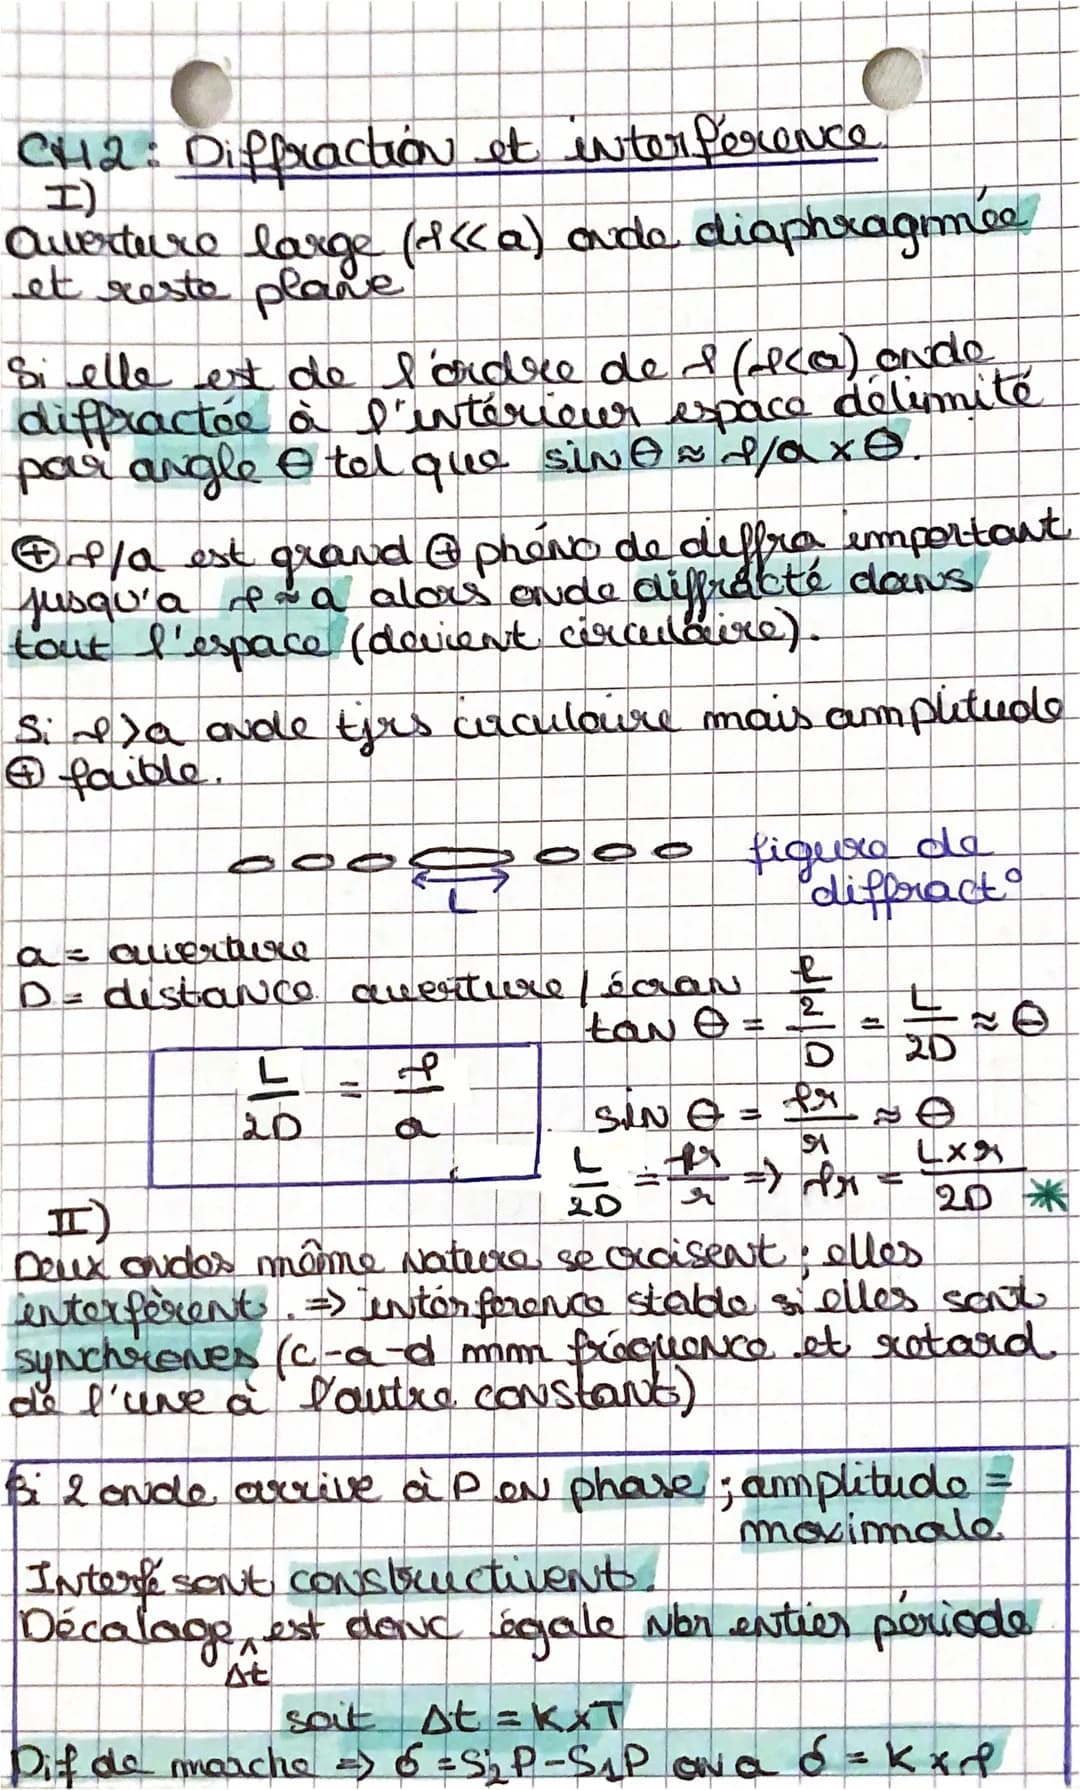 CH2: Diffraction et interférence
I)
Ouverture large (λ<<a) onde diaphragmée
et reste plane
Si elle est de l'ordre de λ (λ<a) onde
diffractée à l'intérieur espace délimité
par angle θ tel que sinθ ≈ λ/a x θ.
⊕ λ/a est grand ⊕ phéno de diffra important
jusqu'a λ≈a alors onde diffracté dans
tout l'espace (devient circulaire).
Si λ>a onde tjrs circulaire mais amplitude
⊕ faible.
figure de
diffract°
L
a = ouverture
D = distance ouverture / écran
tan θ = (L/2)/D = L/2D ≈ θ
L/2D = λ/a
sin θ = λr/r ≈ θ
L/2D = λr/r => λr = Lxr/2D *
II)
Deux ondes même nature se croisent ; elles
interfèrent. => interférence stable si elles sont
synchrones (c-a-d mm fréquence et retard
de l'une à l'autre constant)
Si 2 onde arrive à P en phase ; amplitude =
maximale
Interfé sont constructivent.
Décalage est donc égale nbr entier période
^
Δt
soit Δt = KxT
Dif de marche => δ = S2P-S1P on a δ = K x λ